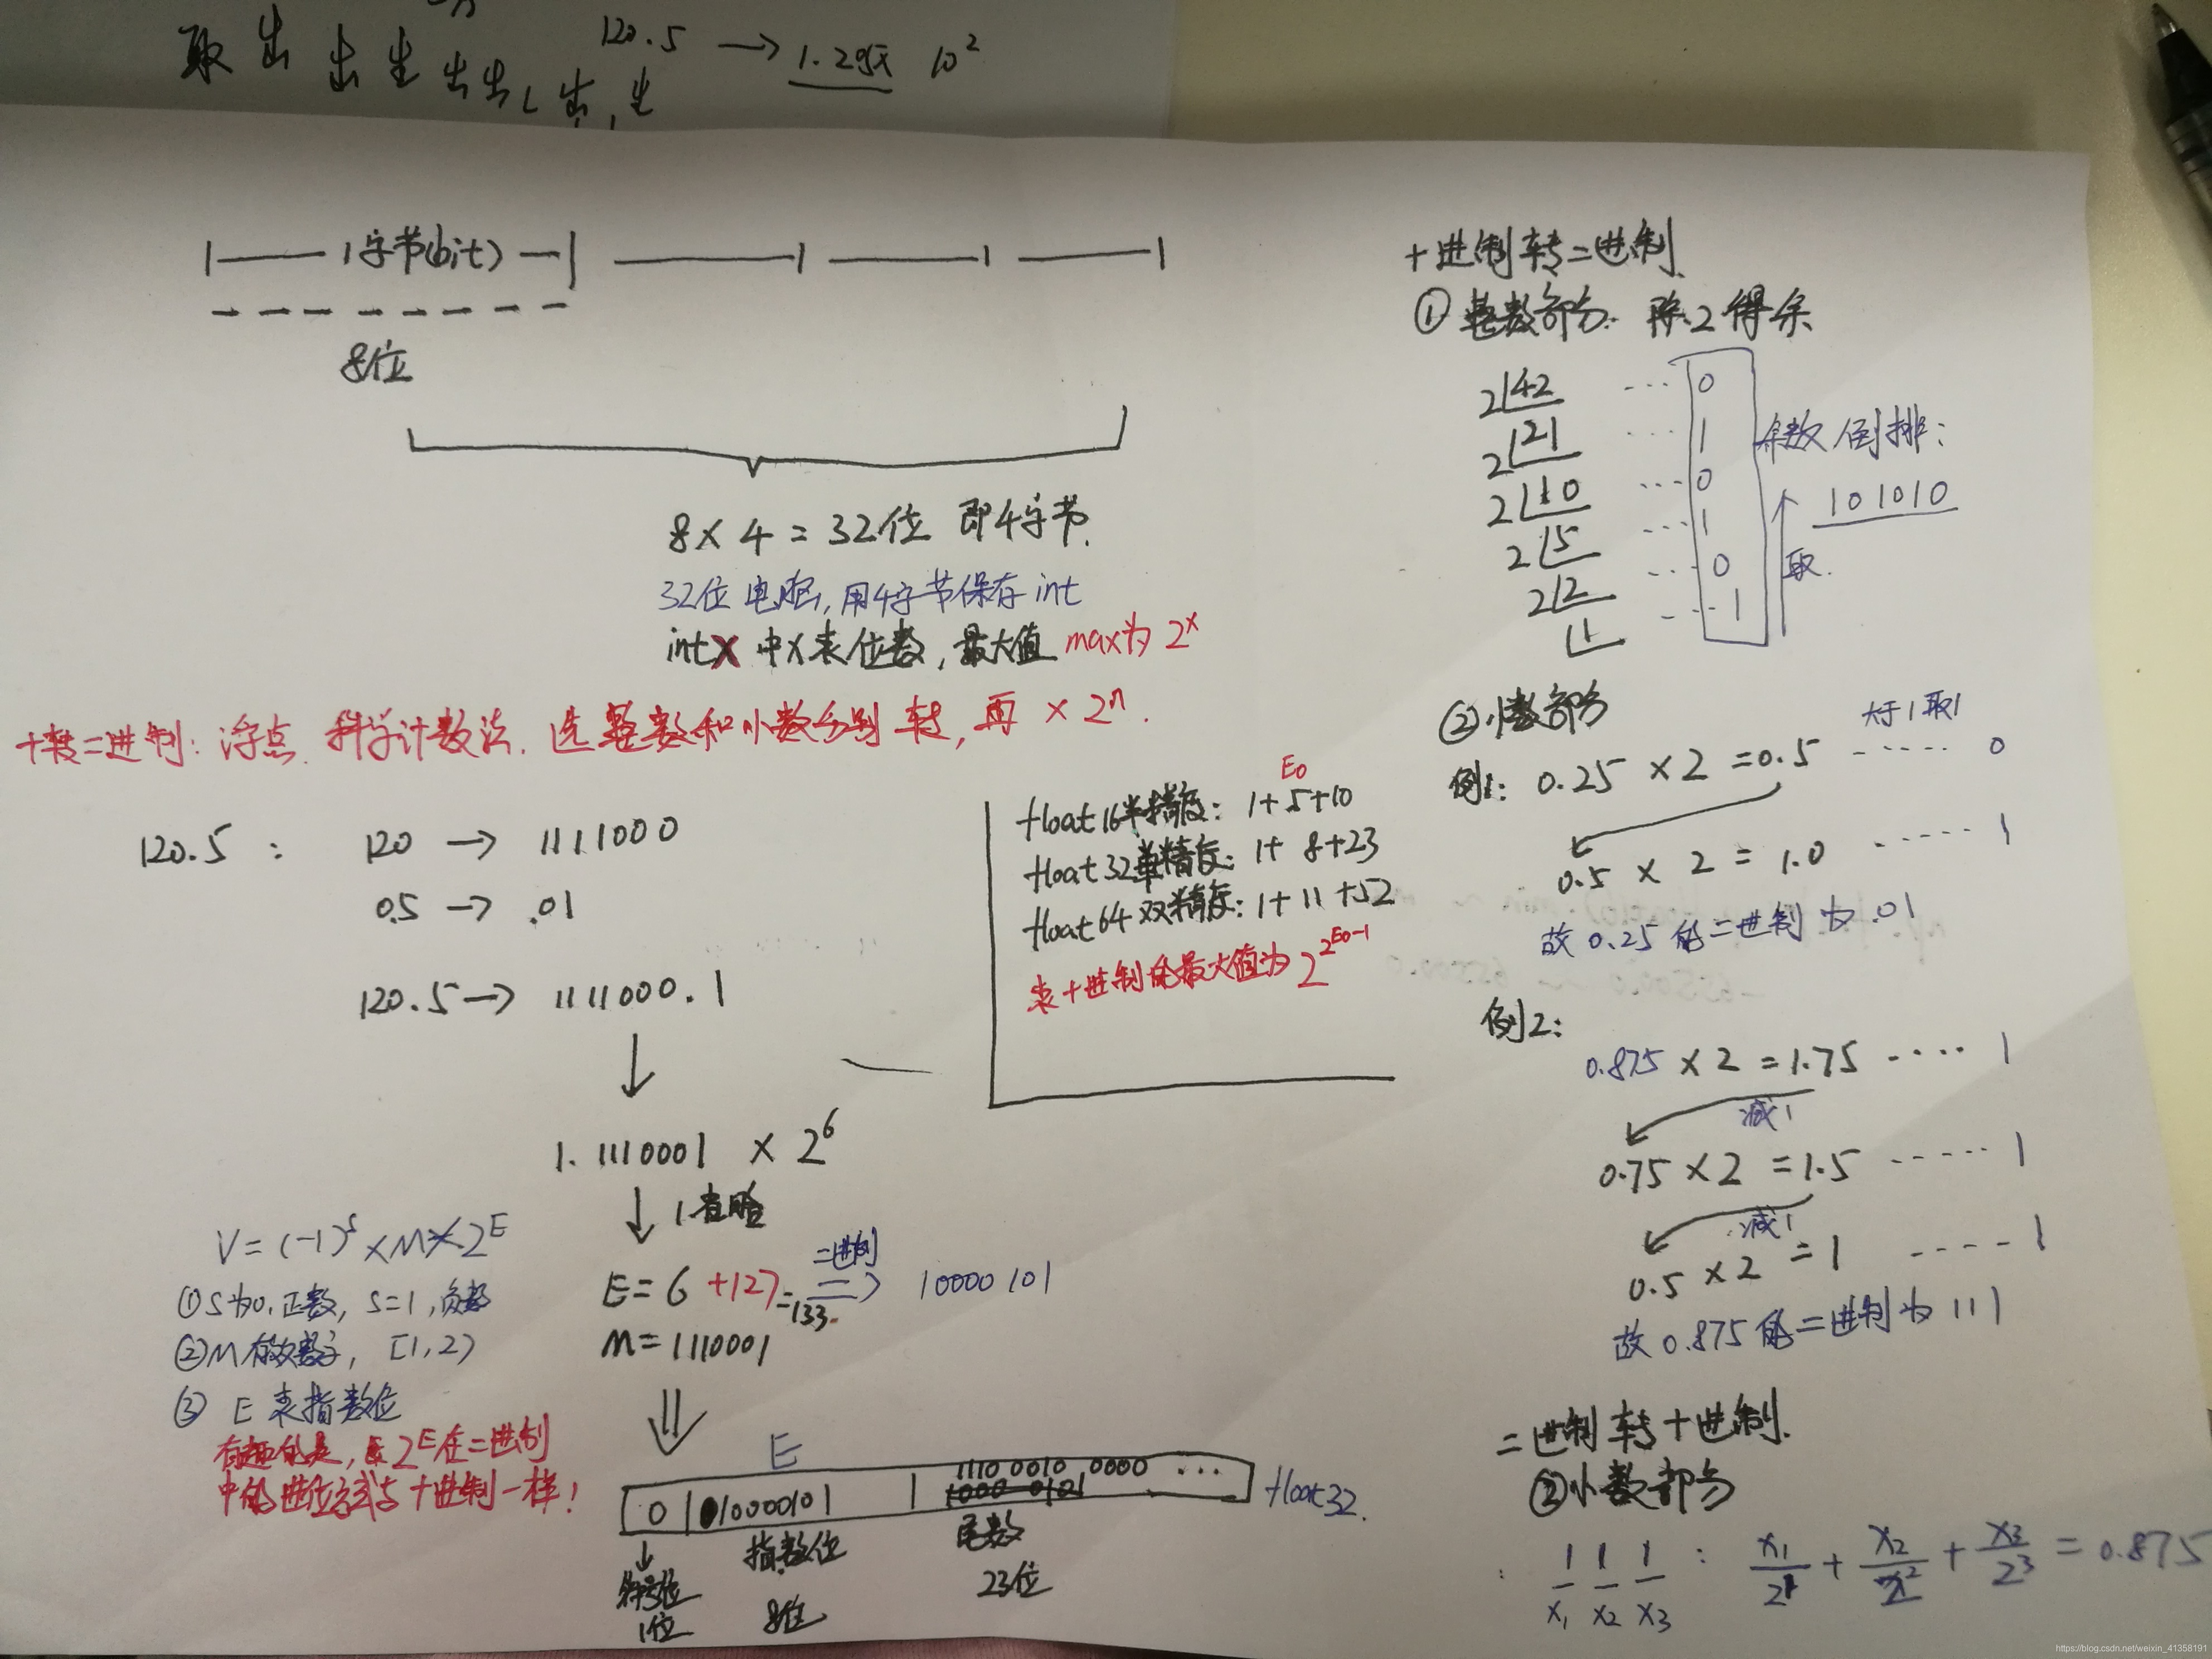 取出 出 生 出出 出 生
120.5 → 1.25x 10²
1字节(bit)
8位
8 × 4 = 32位 即4字节.
32位电脑, 用4字节保存 int
intX 中X表位数, 最大值 max为 2ˣ
十转二进制: 浮点. 科学计数法. 选整数和小数分别转, 再 × 2ⁿ.
120.5 : 120 → 1111000
0.5 → .01
120.5 → 1111000.1
↓
1.1110001 × 2⁶
↓
E = 6 +127 =133. 二进制 ⇒ 10000101
M = 1110001
V = (-1)ˢ × M × 2ᴱ
① S为0, 正数, S=1, 负数
② M 有效数字, [1,2)
③ E 表指数位
有趣的是, 2ᴱ在二进制
中的进位方式与十进制一样!
E
0 10000101 1110 0010 0000 ... float32.
符号位 指数位 尾数
1位 8位 23位
E0
float16半精度: 1+5+10
float32单精度: 1+8+23
float64双精度: 1+11+52
表十进制的最大值为 2^2^(E0-1)
十进制转二进制.
① 整数部分. 除2得余
2 42 ... 0
2 21 ... 1
2 10 ... 0
2 5 ... 1
2 2 ... 0
1 ... 1
余数倒排:
101010
取.
② 小数部分
大于1取1
例1: 0.25 × 2 = 0.5 ..... 0
0.5 × 2 = 1.0 ..... 1
故 0.25 的二进制为 .01
例2:
0.875 × 2 = 1.75 .... 1
减1
0.75 × 2 = 1.5 ..... 1
减1
0.5 × 2 = 1 .... 1
故 0.875 的二进制为 111
二进制转十进制.
② 小数部分
: 1 1 1 : x₁/2¹ + x₂/2² + x₃/2³ = 0.875
x₁ x₂ x₃
https://blog.csdn.net/weixin_41358191